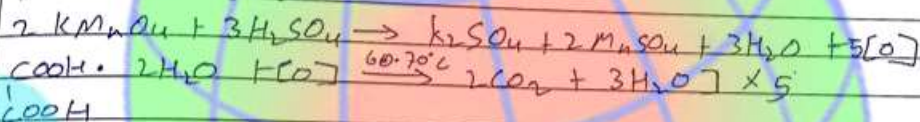 2 KMnO4 + 3H2SO4 → K2SO4 + 2 MnSO4 + 3H2O + 5[O]
COOH. 2H2O +[O] 60-70°C → 2CO2 + 3H2O] × 5
COOH